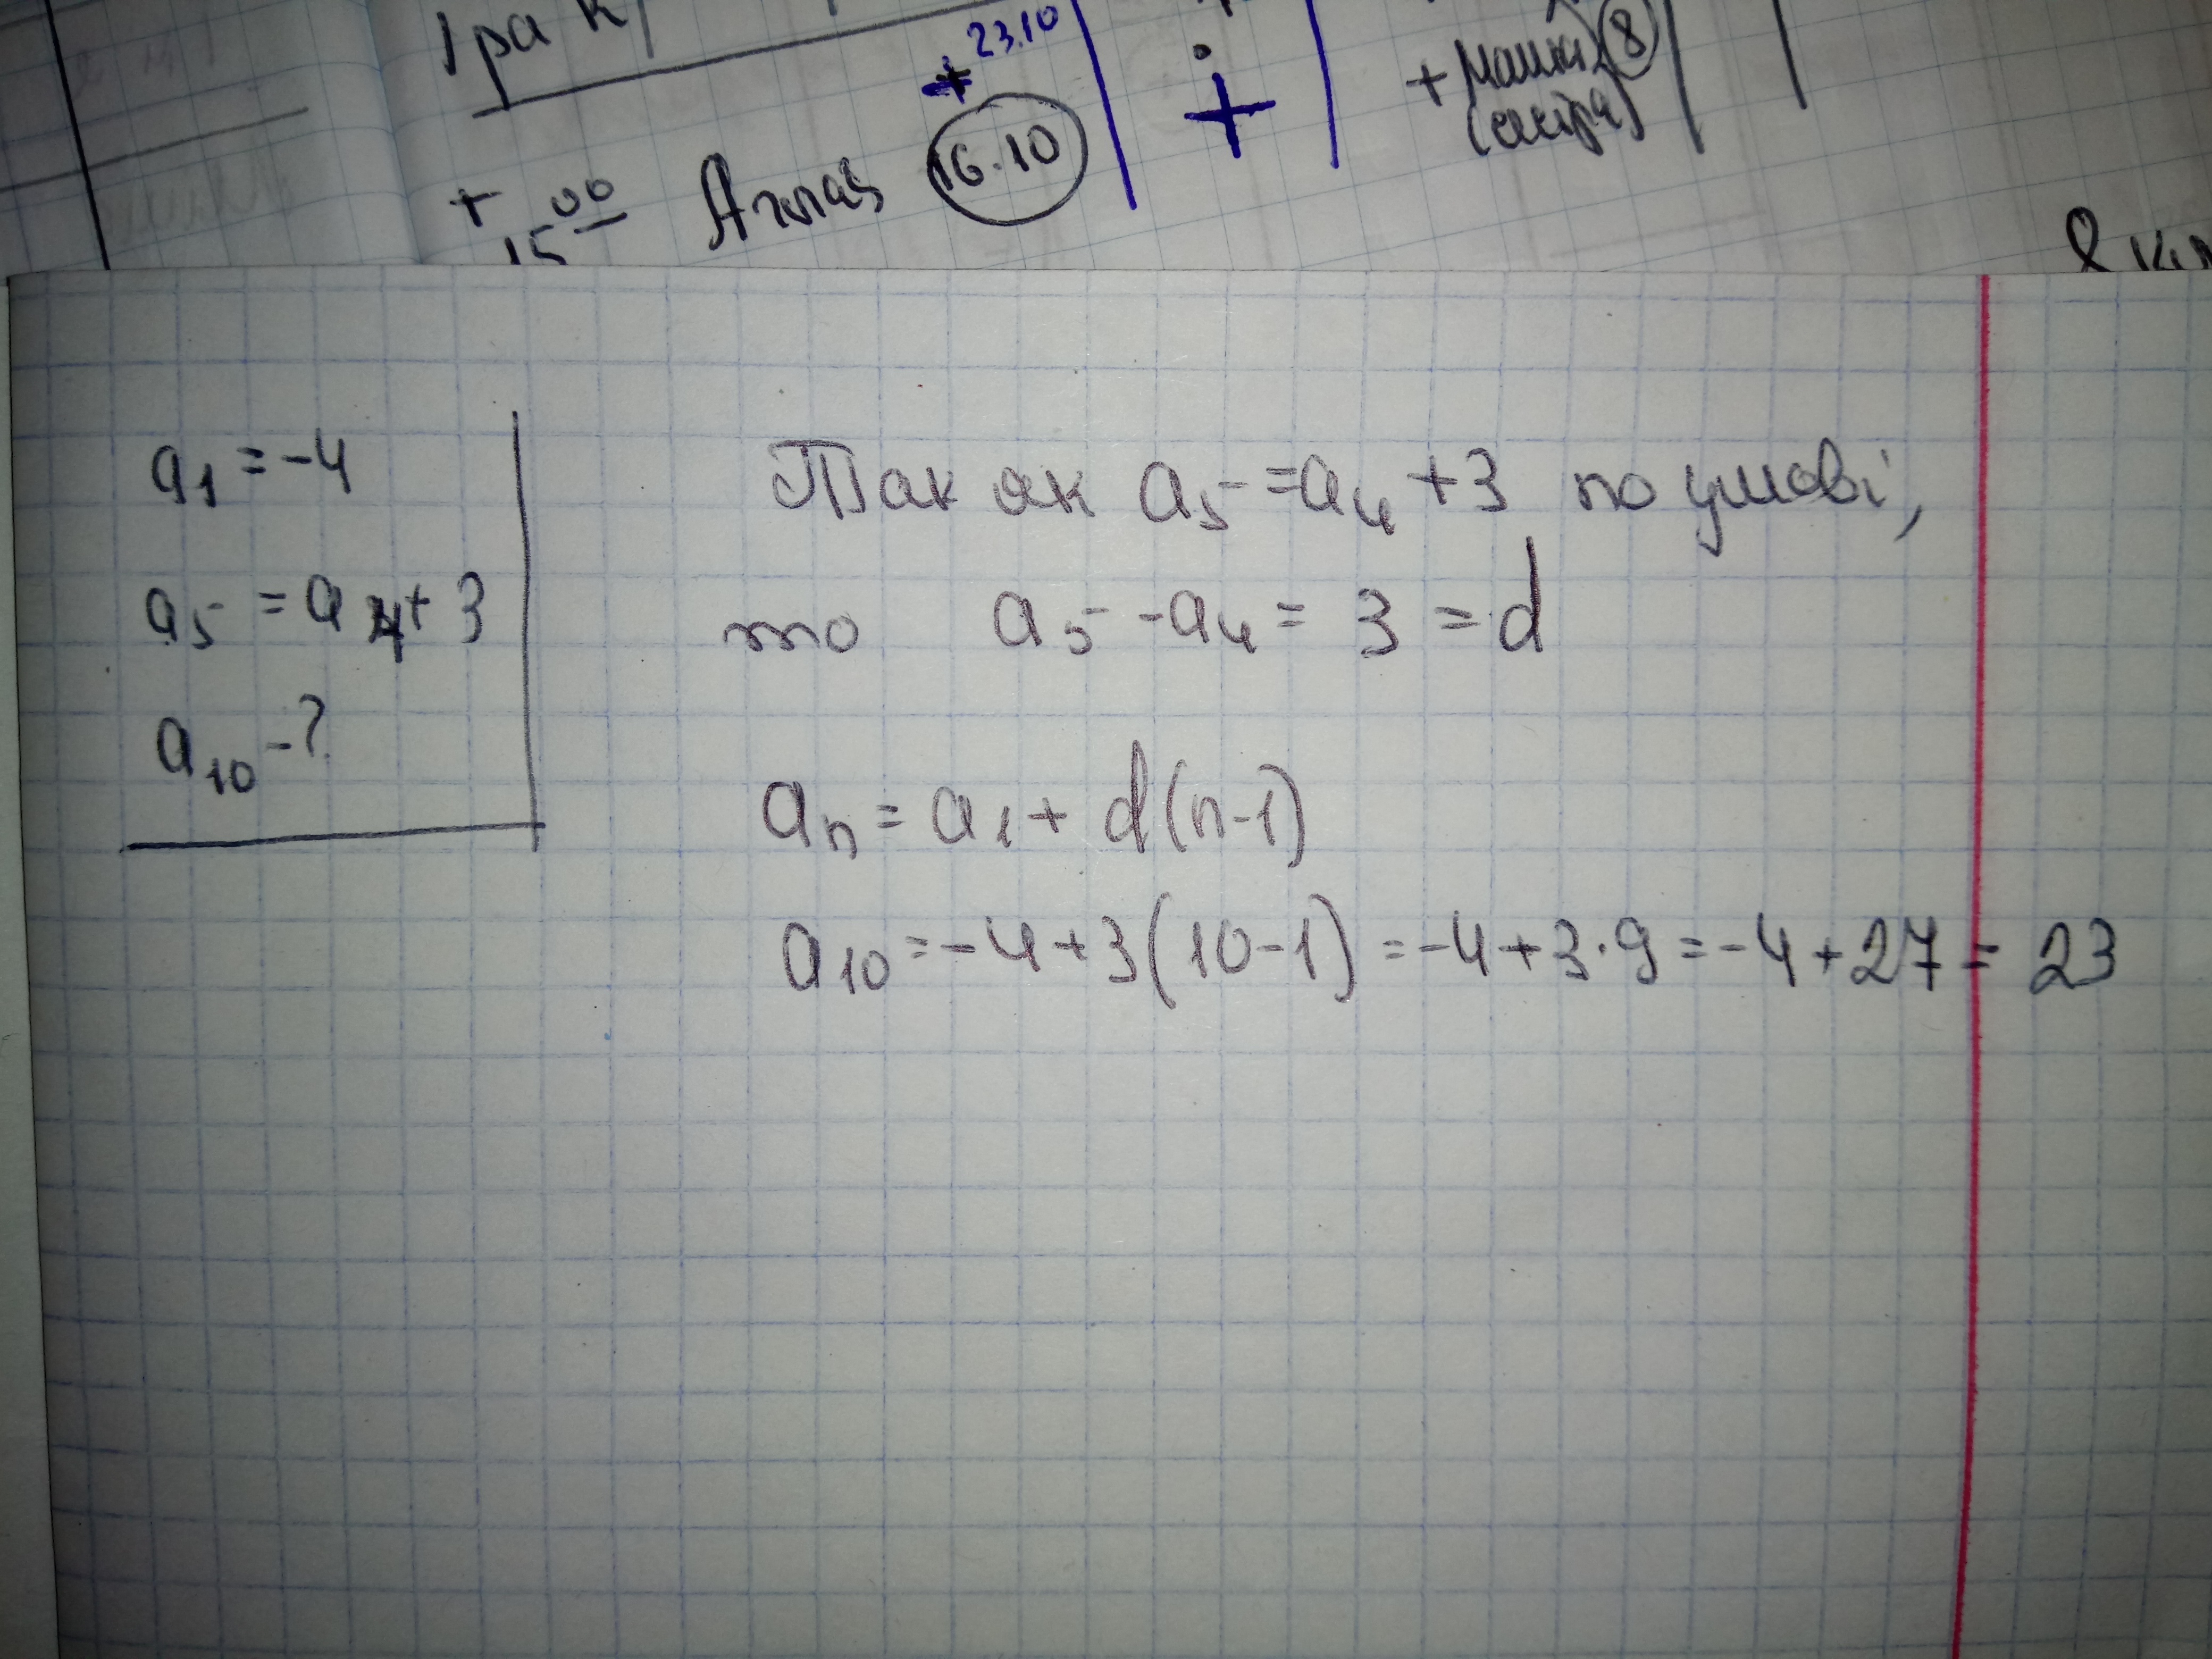 Іра К
+ 23.10
+ 15 00 Аглая 16.10
+ Маша 8
a₁ = -4
a₅ = a₄ + 3
a₁₀ - ?
Так як a₅ = a₄ + 3 по умові,
то a₅ - a₄ = 3 = d
aₙ = a₁ + d(n-1)
a₁₀ = -4 + 3(10-1) = -4 + 3·9 = -4 + 27 = 23